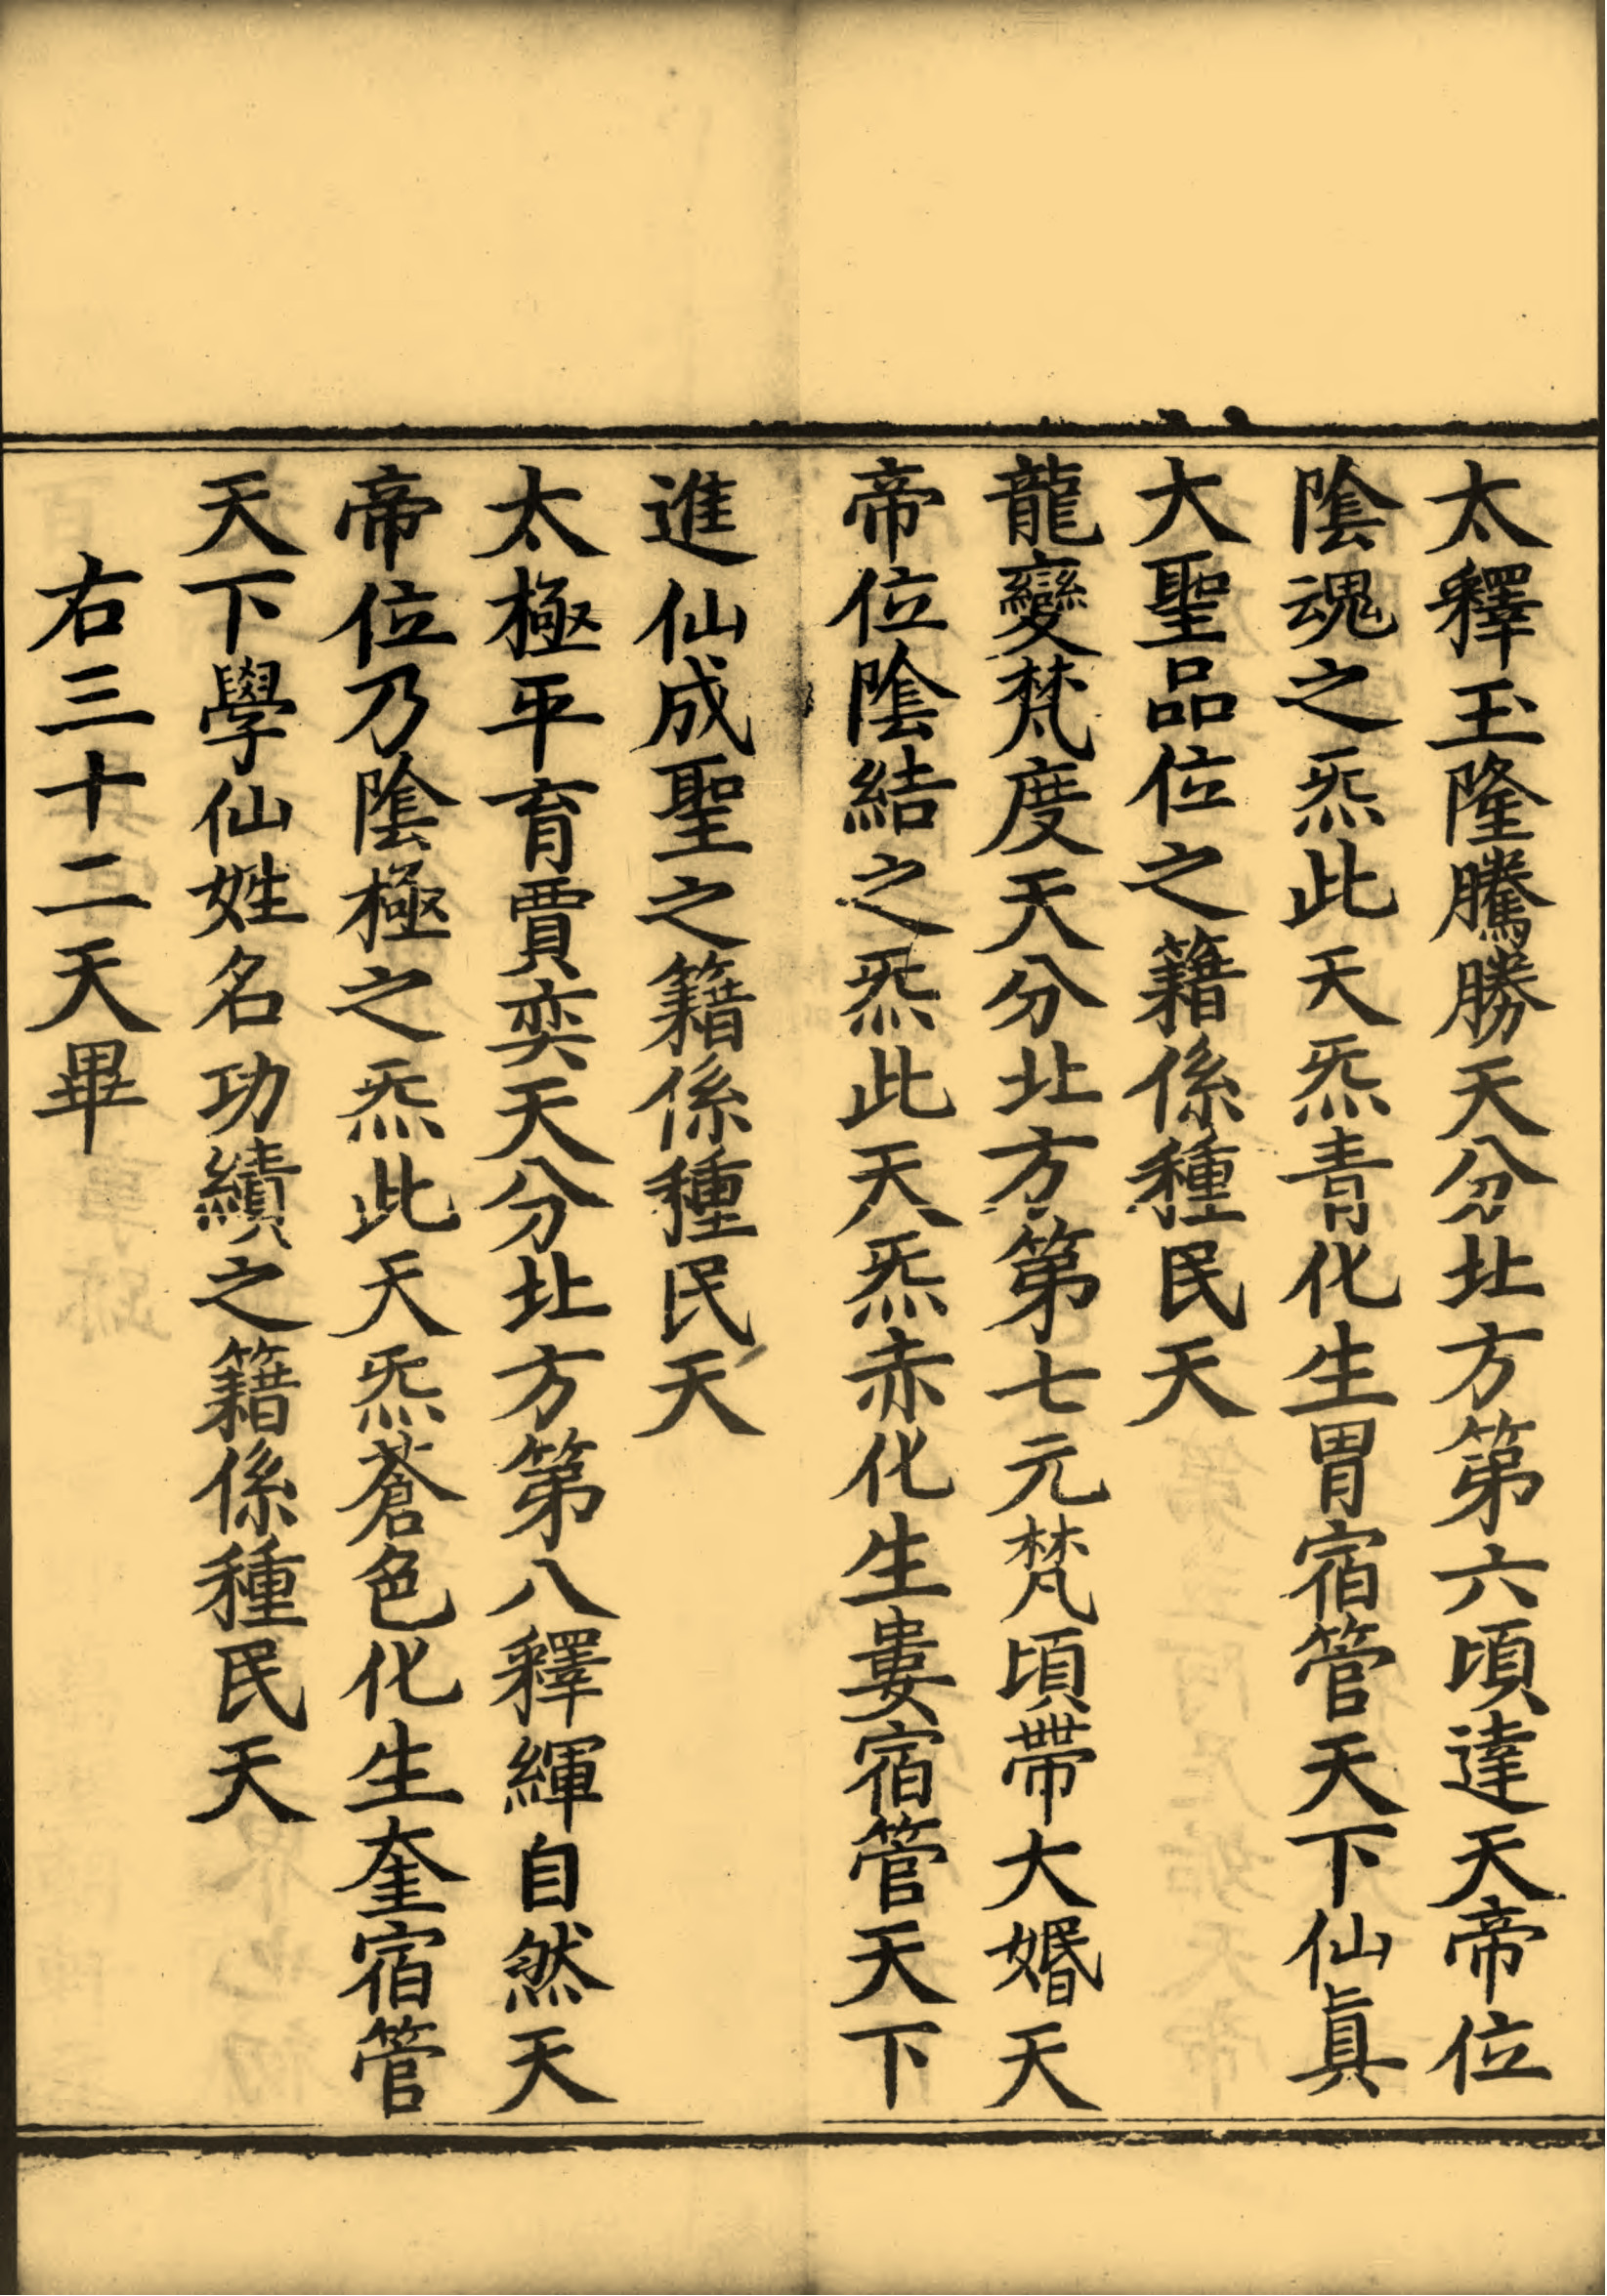 太釋玉隆騰勝天分北方第六頃達天帝位
陰魂之炁此天炁青化生胃宿管天下仙眞
大聖品位之籍係種民天
龍變梵度天分北方第七元梵頃帶大婚天
帝位陰結之炁此天炁赤化生婁宿管天下
進仙成聖之籍係種民天
太極平育賈奕天分北方第八釋緷自然天
帝位乃陰極之炁此天炁蒼色化生奎宿管
天下學仙姓名功績之籍係種民天
右三十二天畢